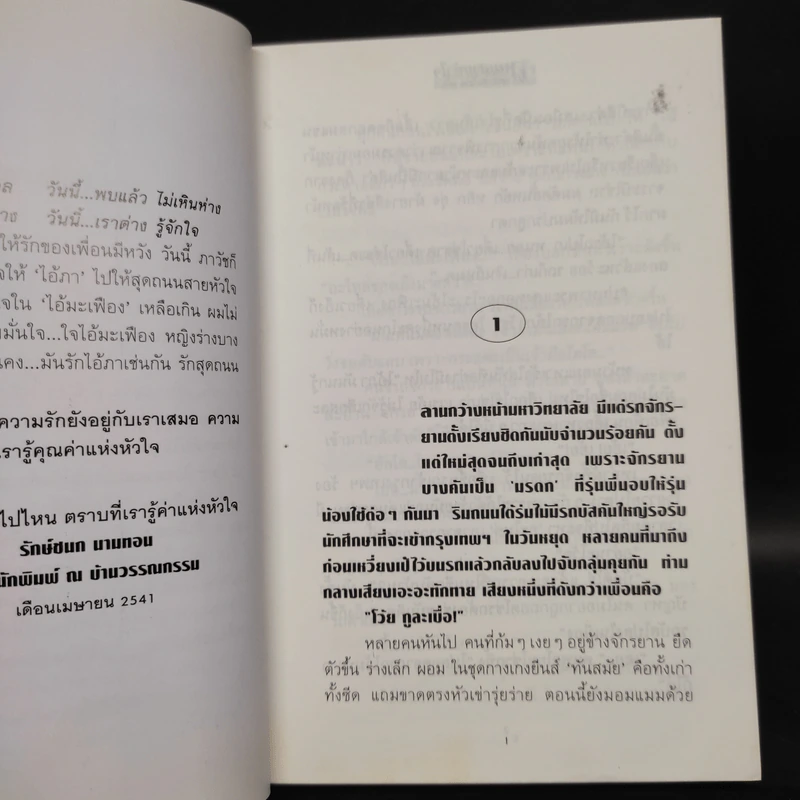 ล วันนี้...พบแล้ว ไม่เหินห่าง
าง วันนี้...เราต่าง รู้จักใจ
ให้รักของเพื่อนมีหวัง วันนี้ ภาวัชก็
จให้ 'ไอ้ภา' ไปให้สุดถนนสายหัวใจ
จใน 'ไอ้มะเฟือง' เหลือเกิน ผมไม่
มมั่นใจ...ใจไอ้มะเฟือง หญิงร่างบาง
แคง...มันรักไอ้ภาเช่นกัน รักสุดถนน
ความรักยังอยู่กับเราเสมอ ความ
เรารู้คุณค่าแห่งหัวใจ
ไปไหน ตราบที่เรารู้ค่าแห่งหัวใจ
รักษ์ชนก นามทอน
นักพิมพ์ ณ บ้านวรรณกรรม
เดือนเมษายน 2541
1
ลานกว้างหน้ามหาวิทยาลัย มีแต่รถจักร-
ยานตั้งเรียงชิดกันนับจำนวนร้อยคัน ตั้ง
แต่ใหม่สุดจนถึงเก่าสุด เพราะจักรยาน
บางคันเป็น 'มรดก' ที่รุ่นพี่มอบให้รุ่น
น้องใช้ต่อๆ กันมา ริมถนนใต้ร่มไม้มีรถบัสคันใหญ่รอรับ
นักศึกษาที่จะเข้ากรุงเทพฯ ในวันหยุด หลายคนที่มาถึง
ก่อนเหวี่ยงเป้ไว้บนรถแล้วกลับลงไปจับกลุ่มคุยกัน ท่าม
กลางเสียงเอะอะทักทาย เสียงหนึ่งที่ดังกว่าเพื่อนคือ
"โว้ย กูละเบื่อ!"
หลายคนหันไป คนที่ก้มๆ เงยๆ อยู่ข้างจักรยาน ยืด
ตัวขึ้น ร่างเล็ก ผอม ในชุดกางเกงยีนส์ 'ทันสมัย' คือทั้งเก่า
ทั้งซีด แถมขาดตรงหัวเข่ารุ่ยร่าย ตอนนี้ยังมอมแมมด้วย
1